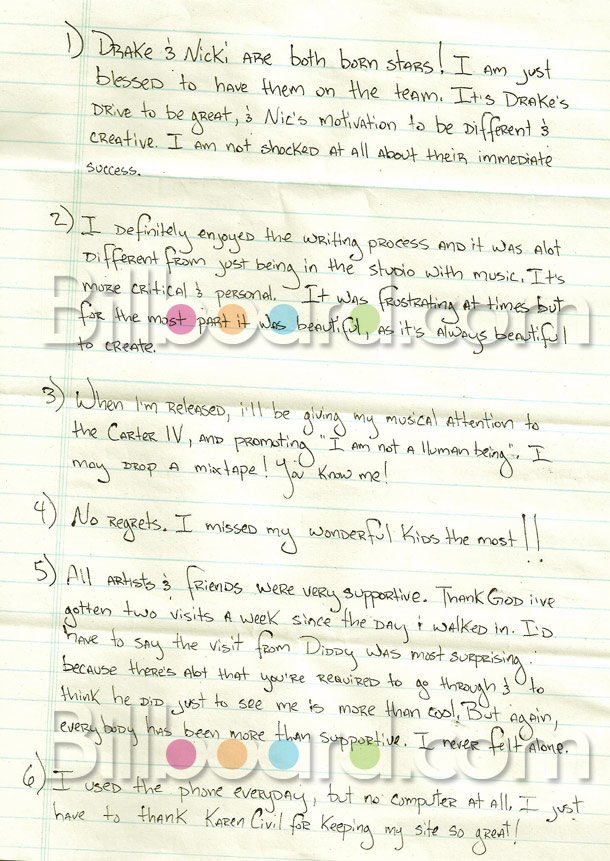 1) Drake & Nicki are both born stars! I am just
blessed to have them on the team. It's Drake's
drive to be great, & Nic's motivation to be different &
creative. I am not shocked at all about their immediate
success.
2) I definitely enjoyed the writing process and it was alot
different from just being in the studio with music. It's
more critical & personal. It was frustrating at times but
for the most part it was beautiful, as it's always beautiful
to create.
Billboard.com
3) When I'm released, i'll be giving my musical attention to
the Carter IV, and promoting "I am not a Human being". I
may drop a mixtape! You know me!
4) No regrets. I missed my wonderful kids the most!!
5) All artists & friends were very supportive. Thank God i've
gotten two visits a week since the day I walked in. I'd
have to say the visit from Diddy was most surprising
because there's alot that you're required to go through & to
think he did just to see me is more than cool. But again,
everybody has been more than supportive. I never felt alone.
Billboard.com
6) I used the phone everyday, but no computer at all. I just
have to thank Karen Civil for keeping my site so great!